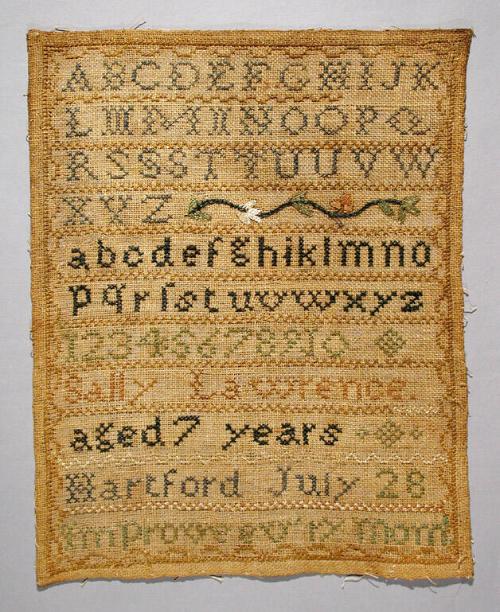 ABCDEFGHIJK
LMMNNOOPQ
RSSSTTUUVW
XYZ
abcdefghiklmno
pqrſstuvwxyz
12345678910
Sally Lawrence.
aged 7 years
Hartford July 28
Improve ev'ry